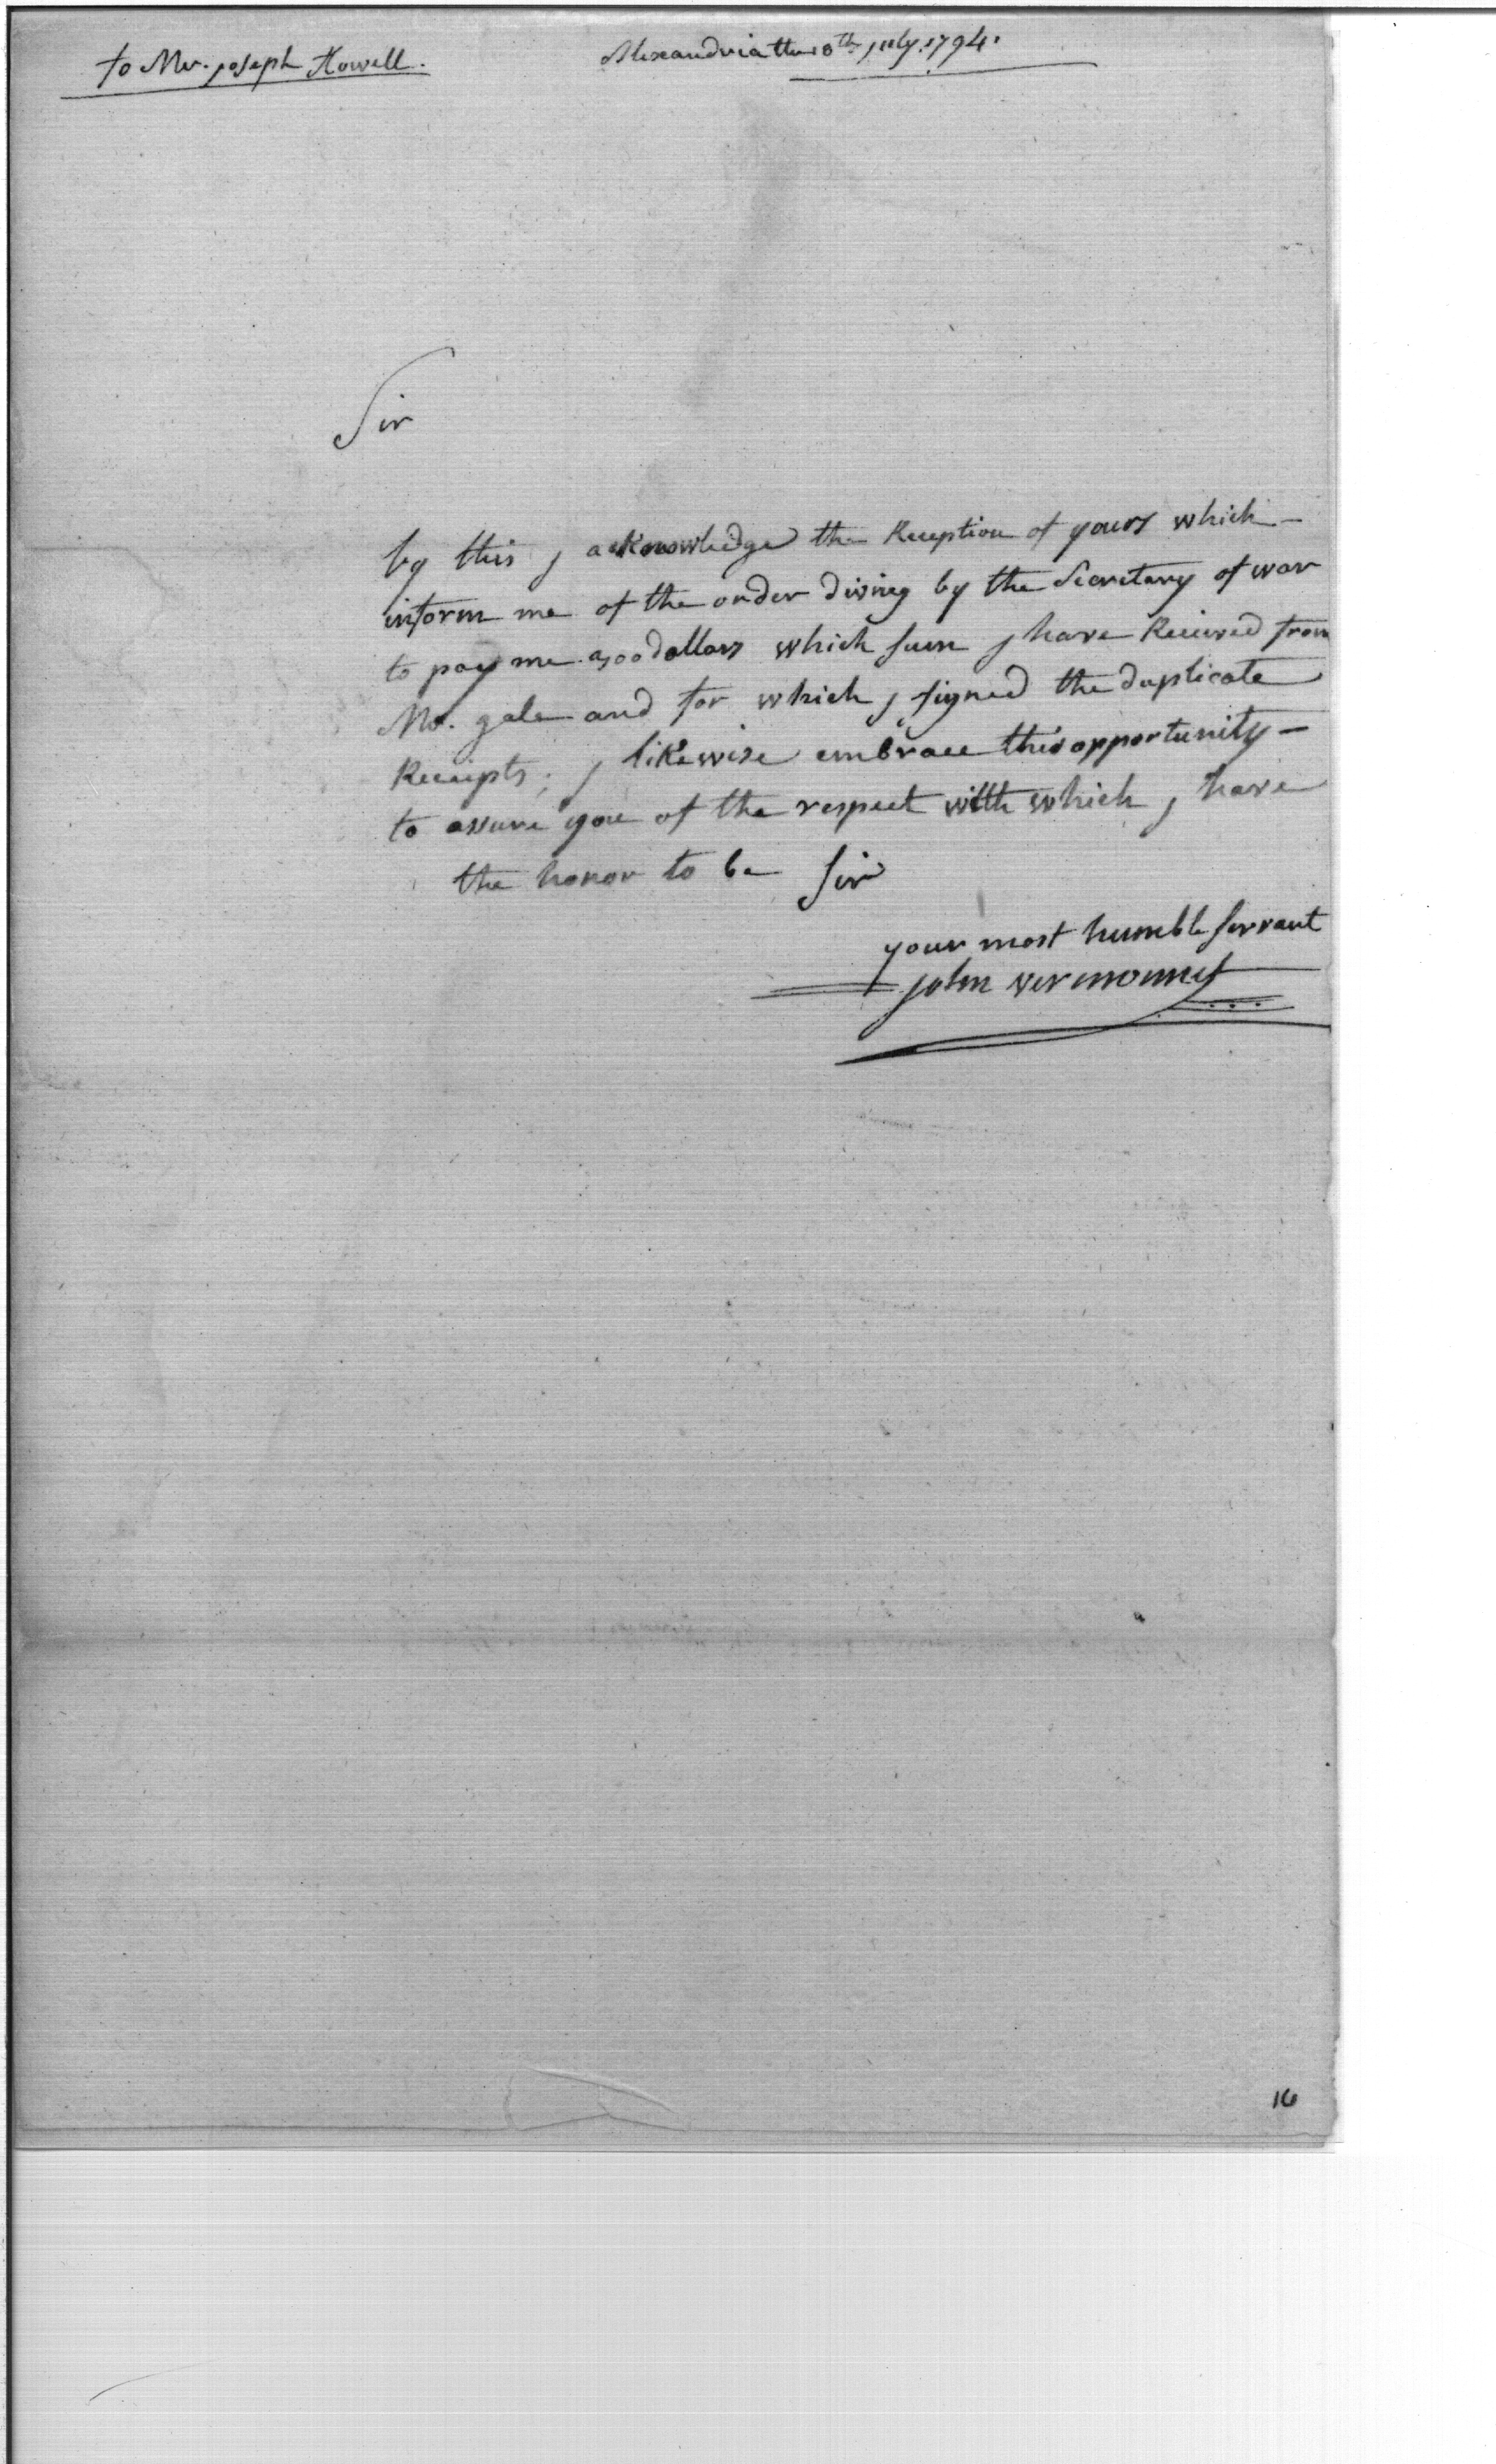 to Mr. joseph Howell.
Alexandria the 18th july 1794.
Sir
by this j acknowledge the Reception of yours which
inform me of the order diving by the Secretary of war
to pay me dollars which sum j have Received from
Mr. gale and for which j signed the duplicate
Receipts; j likewise embrace this opportunity
to assure you of the respect with which j have
the honor to be Sir
your most humble servant
john vermonnet
16